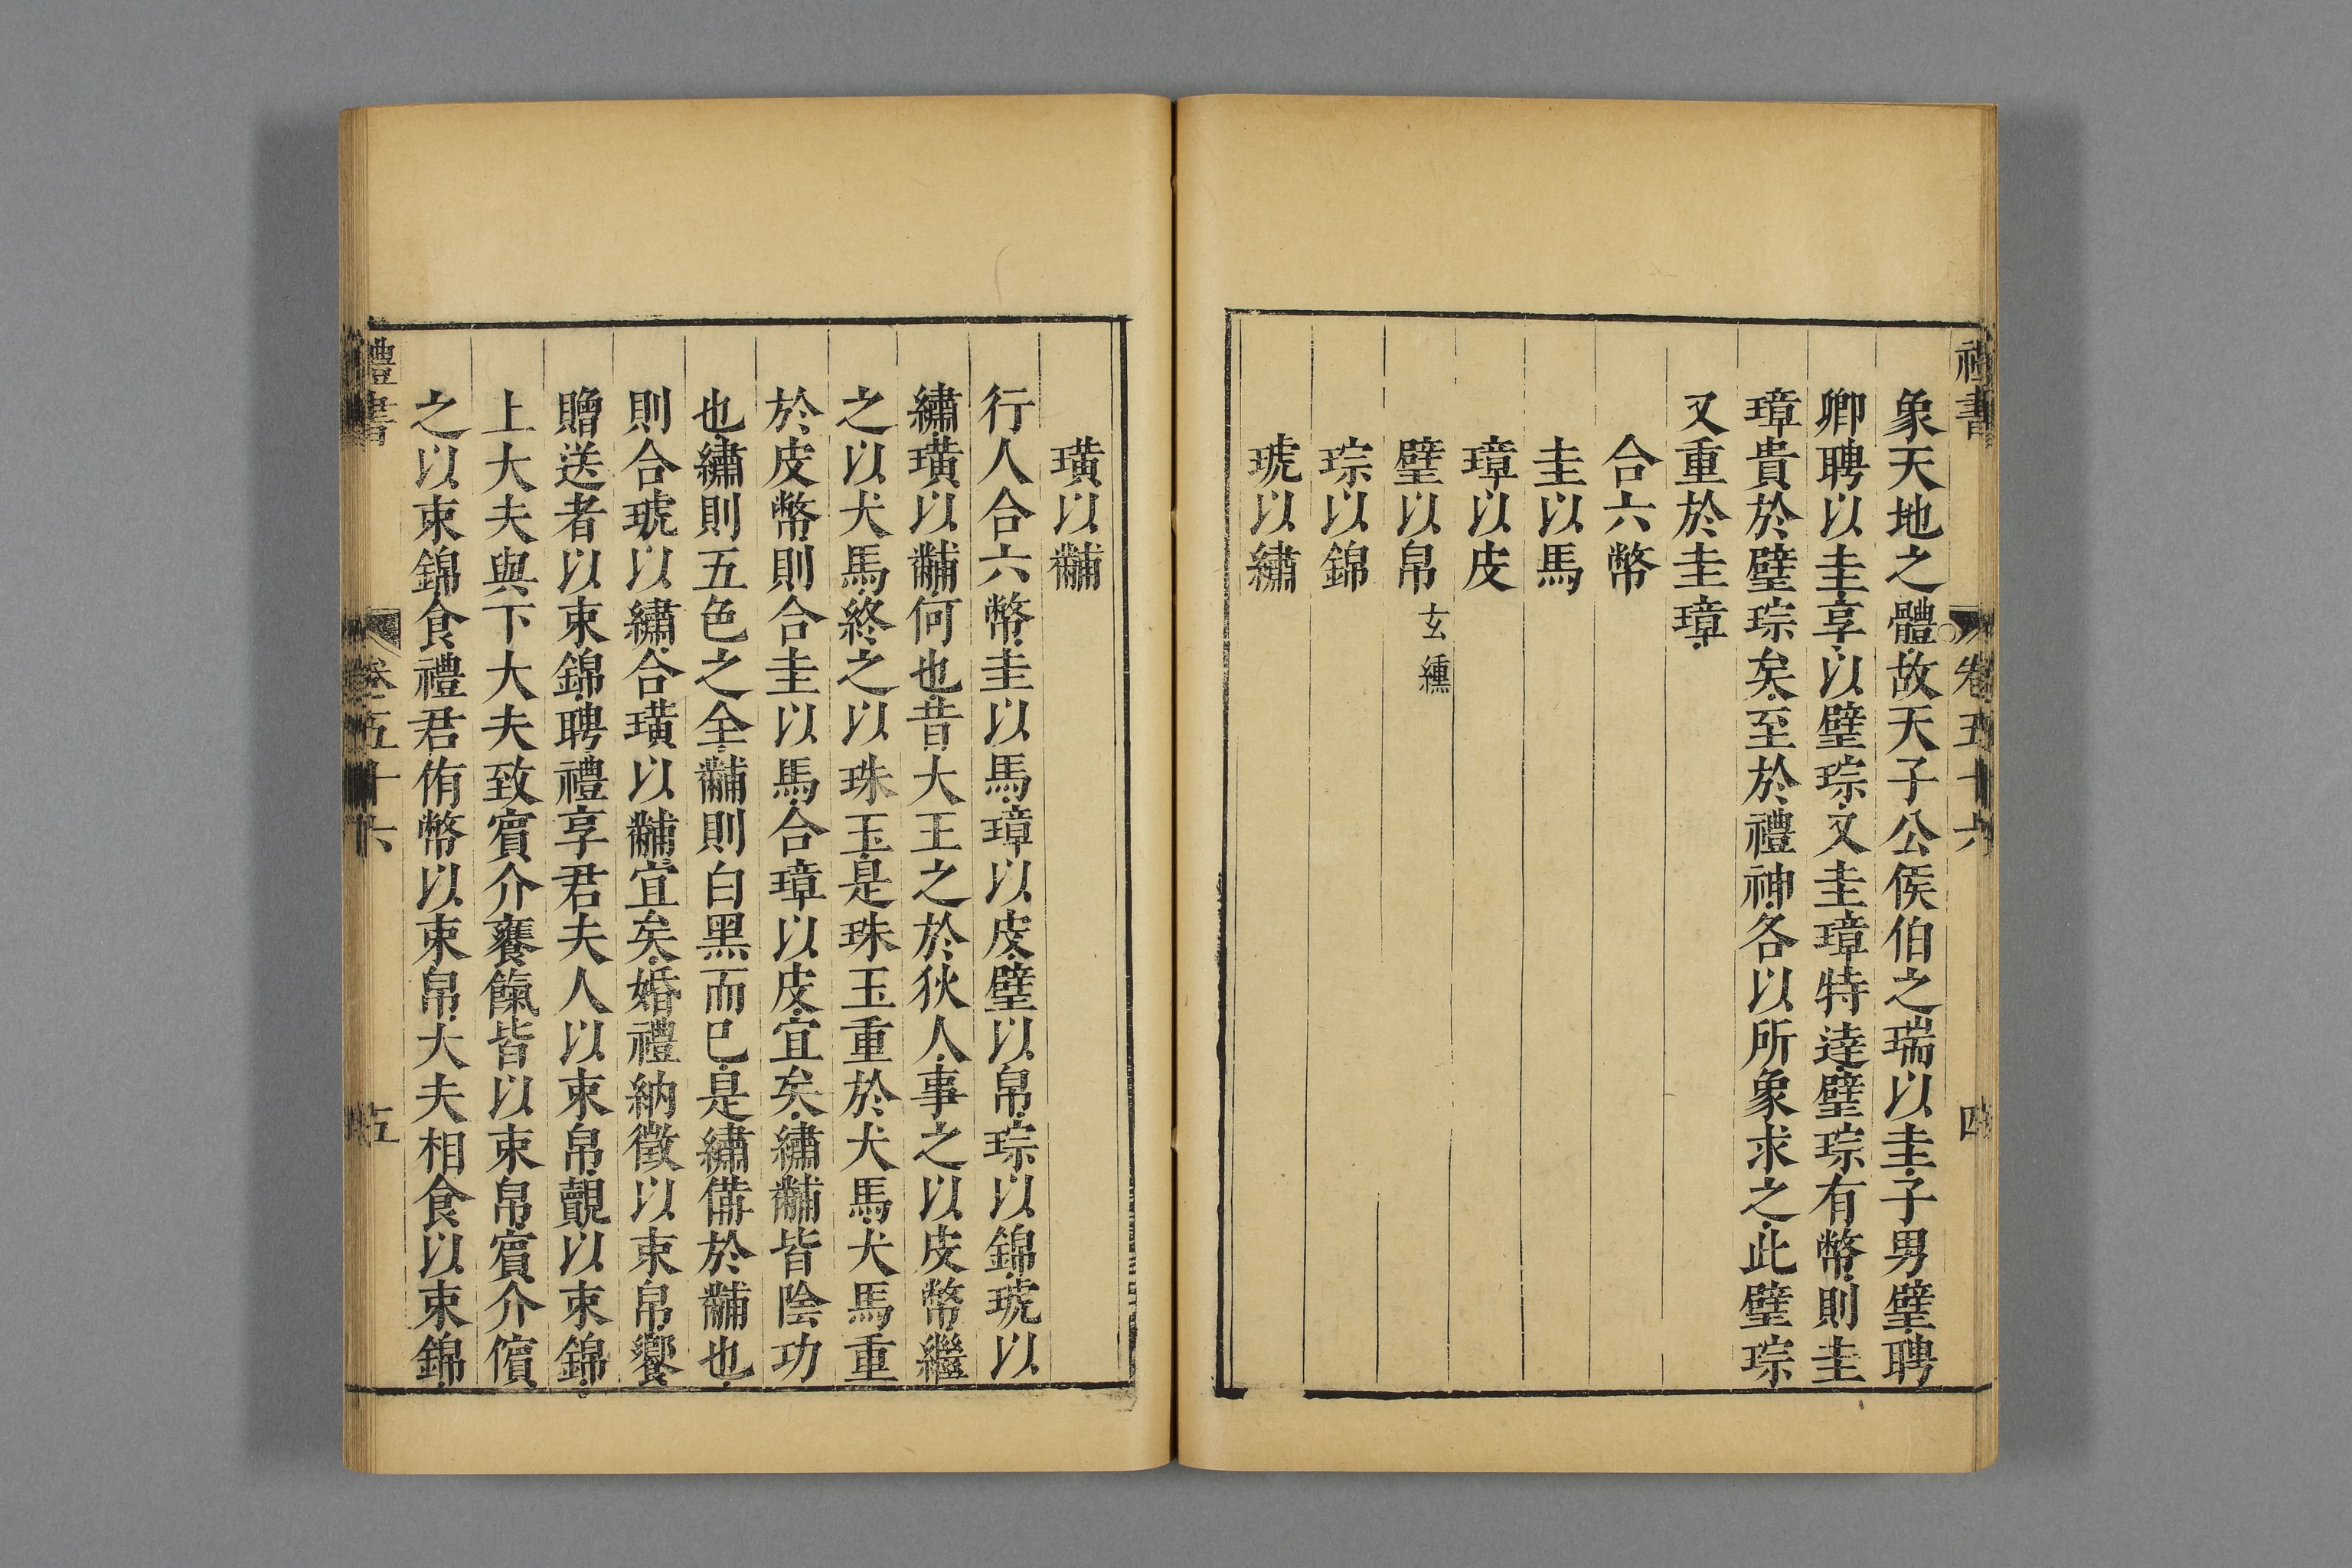 禮書
卷五十六
四
象天地之體故天子公侯伯之瑞以圭子男璧聘
卿聘以圭享以璧琮又圭璋特達璧琮有幣則圭
璋貴於璧琮矣至於禮神各以所象求之此璧琮
又重於圭璋
合六幣
圭以馬
璋以皮
璧以帛玄纁
琮以錦
琥以繡
璜以黼
行人合六幣圭以馬璋以皮璧以帛琮以錦琥以
繡璜以黼何也昔大王之於狄人事之以皮幣繼
之以犬馬終之以珠玉是珠玉重於犬馬犬馬重
於皮幣則合圭以馬合璋以皮宜矣繡黼皆陰功
也繡則五色之全黼則白黑而已是繡備於黼也
則合琥以繡合璜以黼宜矣婚禮納徵以束帛饗
贈送者以束錦聘禮享君夫人以束帛覿以束錦
上大夫與下大夫致賓介饔餼皆以束帛賓介儐
之以束錦食禮君侑幣以束帛大夫相食以束錦
禮書
卷五十六
五